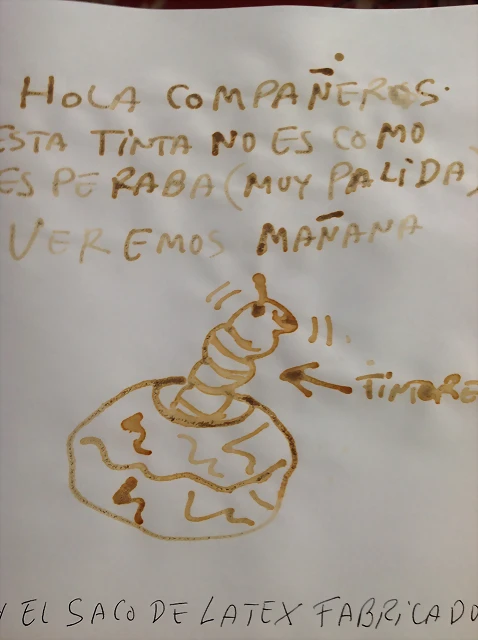 HOLA COMPAÑEROS.
ESTA TINTA NO ES COMO
ESPERABA (MUY PALIDA)
VEREMOS MAÑANA
TIMBRE
Y EL SACO DE LATEX FABRICADO